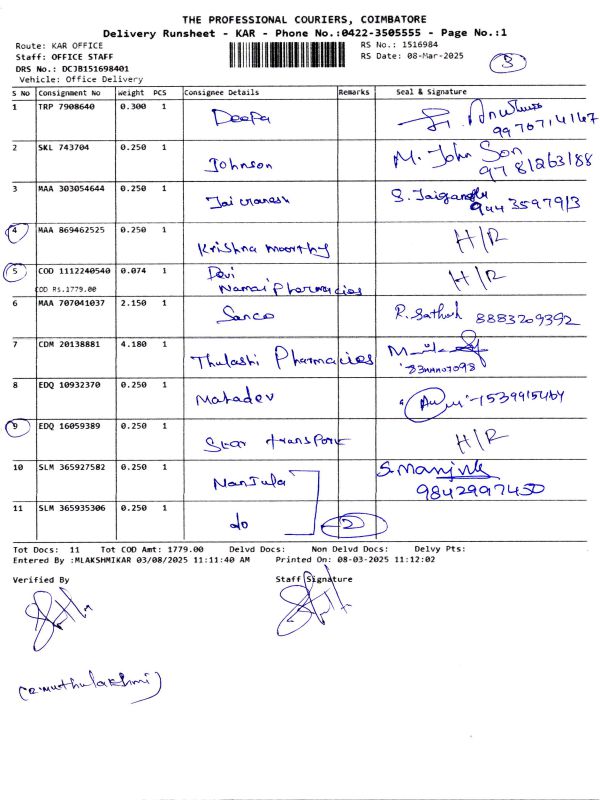 THE PROFESSIONAL COURIERS, COIMBATORE
Delivery Runsheet - KAR - Phone No.:0422-3505555 - Page No.:1
Route: KAR OFFICE RS No.: 1516984
Staff: OFFICE STAFF RS Date: 08-Mar-2025
3
DRS No.: DCJB151698401
Vehicle: Office Delivery
S No Consignment No Weight PCS Consignee Details Remarks Seal & Signature
1 TRP 7908640 0.300 1 Deepa
2 SKL 743704 0.250 1 Johnson M. John Son
9781263188
3 MAA 303054644 0.250 1 S. Jaiganesh
9443597913
4 MAA 869462525 0.250 1 Krishna moorthy H/R
5 COD 1112240540 0.074 1 Devi H/R
COD Rs.1779.00 Namai Pharmacies
6 MAA 707041037 2.150 1 Sanco R. Sathish 8883209392
7 CDM 20138881 4.180 1 Thulashi Pharmacies
8 EDQ 10932370 0.250 1 Mahadev
9 EDQ 16059389 0.250 1 Star transport H/R
10 SLM 365927582 0.250 1 Manjula S. Manjula
9842997450
11 SLM 365935306 0.250 1 do 2
Tot Docs: 11 Tot COD Amt: 1779.00 Delvd Docs: Non Delvd Docs: Delvy Pts:
Entered By :MLAKSHMIKAR 03/08/2025 11:11:40 AM Printed On: 08-03-2025 11:12:02
Verified By Staff Signature